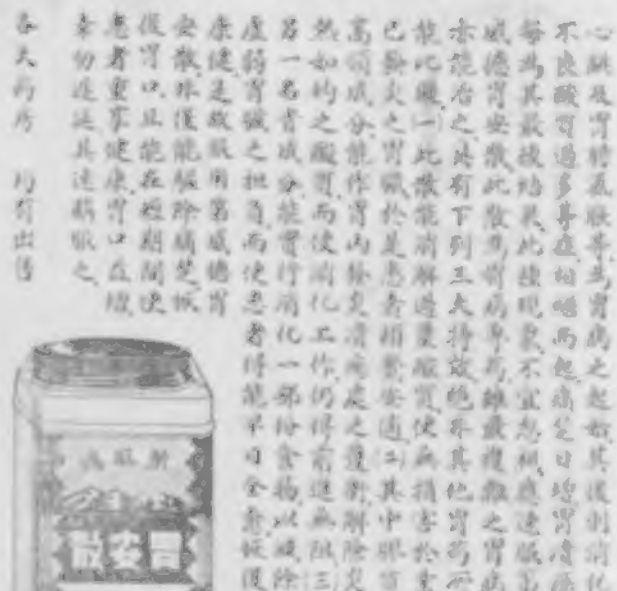 心跳及胃膨若脹等為胃病之起始其後則消化
不良酸質過多等症相繼而起痛楚日增胃潰瘍
每為其最後結果此種現象不宜忽視應速服
威德胃安散此散為胃病專家雖最複雜之胃病
亦能治之因有下列三大特效絕非其他胃藥所
能此擬(一)此散能消解過量酸質使無損害於
已發炎之胃臟於是患者頓覺安適(二)其中膠質
高嶺成分能作胃內發炎潰瘍處之護劑解除炎
熱如灼之酸質而使消化工作仍得前進無阻(三)
另一名貴成分能實行消化一部份食物以減除
虛弱胃臟之担負而使患者得能早日全愈恢復
康健是故服用第威德胃
安散非僅能驅除痛楚恢
復胃口且能在短期間使
患者重享健康胃口在
幸勿遲延其速購服之
各大藥房 均有出售
胃安散